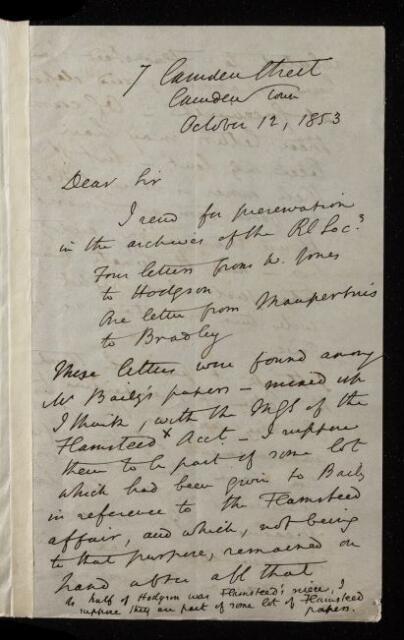 7 Camden Street
Camden Town
October 12, 1853
Dear Sir
I send for preservation
in the archives of the Rl Socy
Four letters from W. Jones
to Hodgson
One letter from Maupertuis
to Bradley
These letters were found among
Mr Baily's papers – mixed up
I think, with the MSS of the
Flamsteed x Acct. – I suppose
them to be part of some lot
which had been given to Baily
in reference to the Flamsteed
affair, and which, not being
to that purpose, remained on
hand after all that
half of Hodgson was Flamsteed's niece, I
suppose they are part of some lot of Flamsteed
papers.